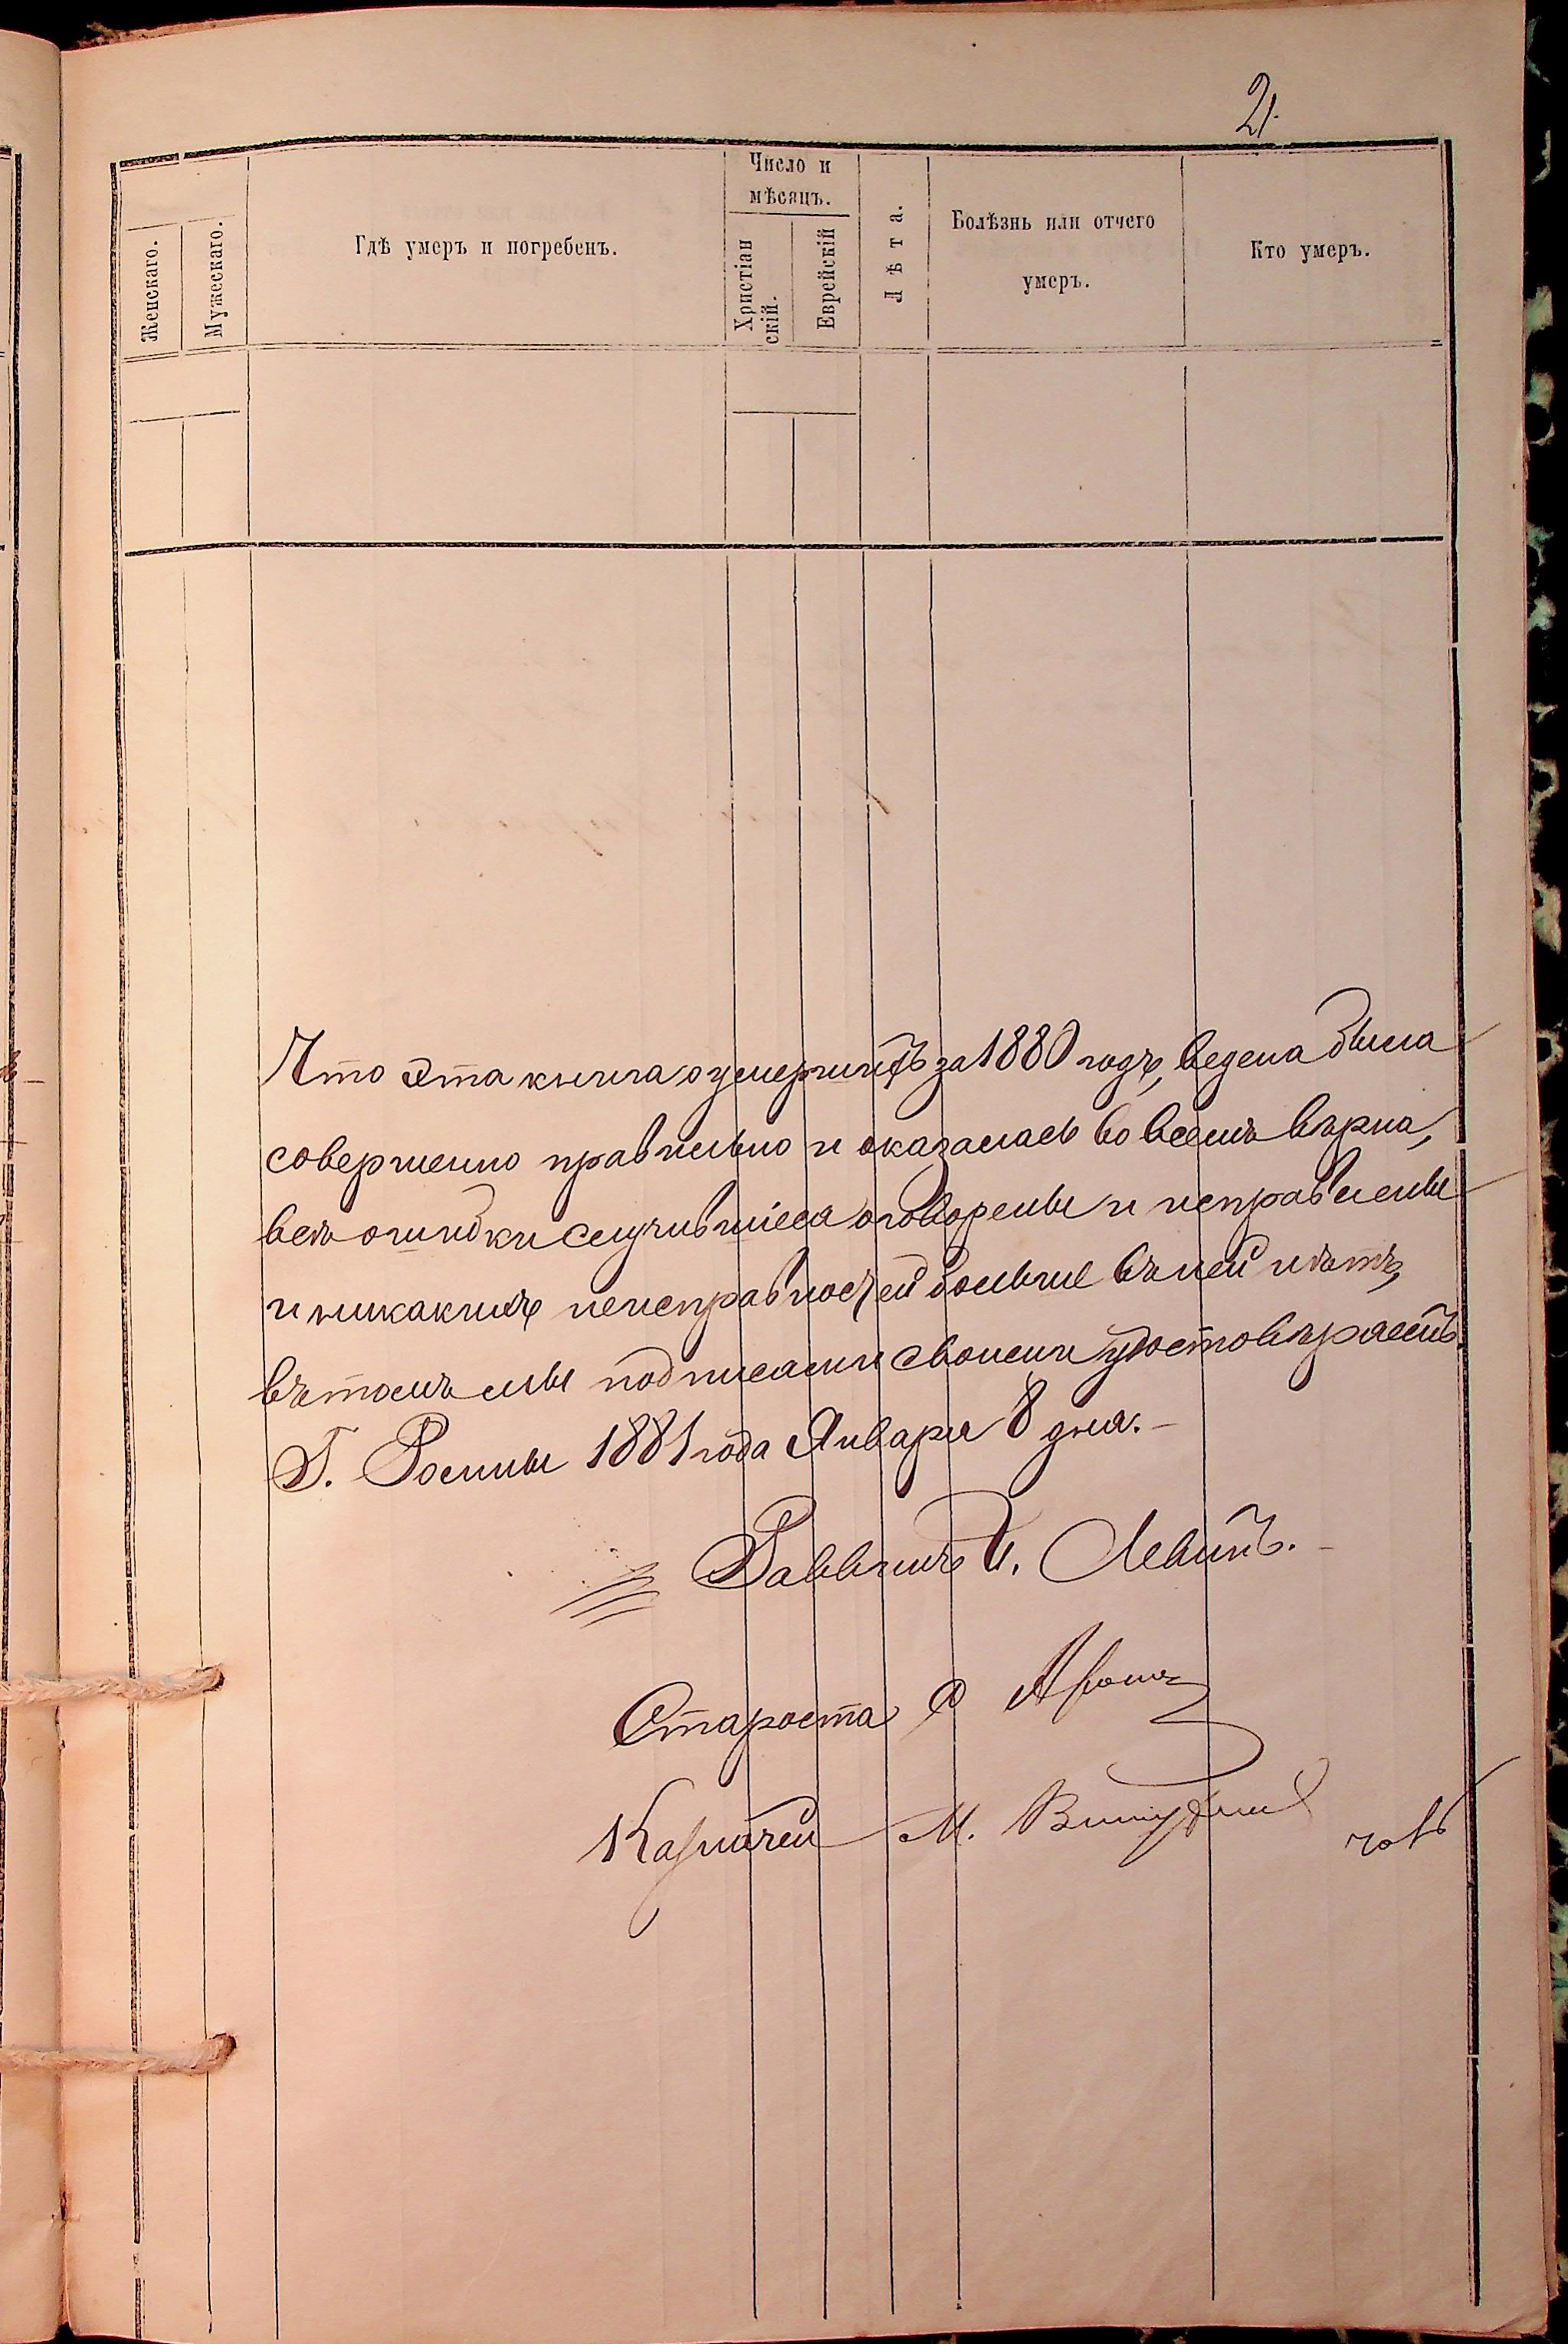 21.
Число и
мѣсяцъ.
Женскаго.
Мужескаго.
Гдѣ умеръ и погребенъ.
Христіан
скій.
Еврейскій
Лѣта.
Болѣзнь или отчего
умеръ.
Кто умеръ.
Что эта книга о умершихъ за 1880 годъ, ведена была
совершенно правильно и оказалась во всемъ вѣрна,
всѣ ошибки случившіеся оговорены и исправлены
и никакихъ неисправностей больше въ ней нѣтъ,
въ томъ мы подписами своими удостовѣряемъ.
Г. Россіены 1881 года Января 8 дня.-
Раввинъ И. Левинъ.
Староста
Казначей М.